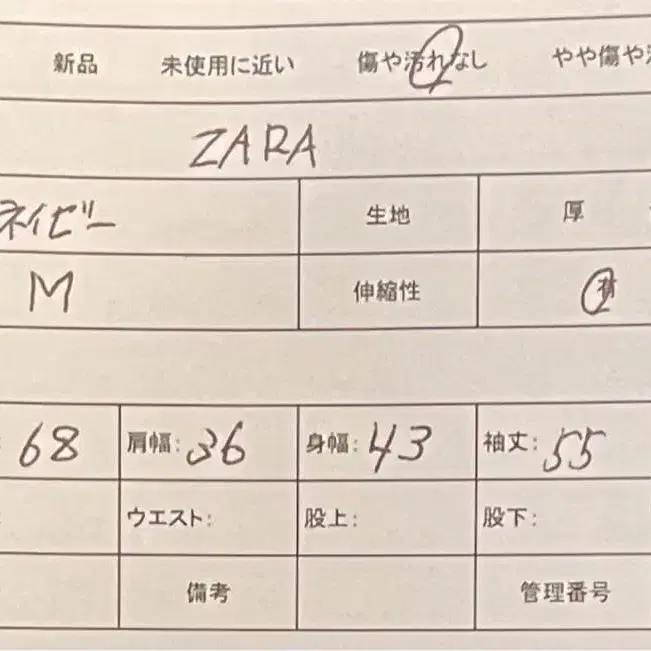 新品 未使用に近い 傷や汚れなし やや傷や
ZARA
ネイビー 生地 厚
M 伸縮性 有
68 肩幅: 36 身幅: 43 袖丈: 55
ウエスト: 股上: 股下:
備考 管理番号